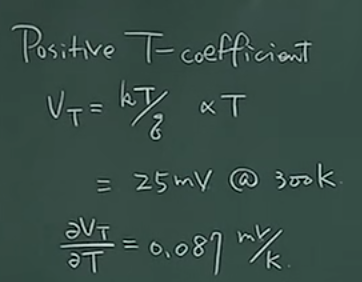 Positive T-coefficient
V_T = kT/q ∝ T
= 25mV @ 300k.
∂V_T/∂T = 0.087 mV/K.